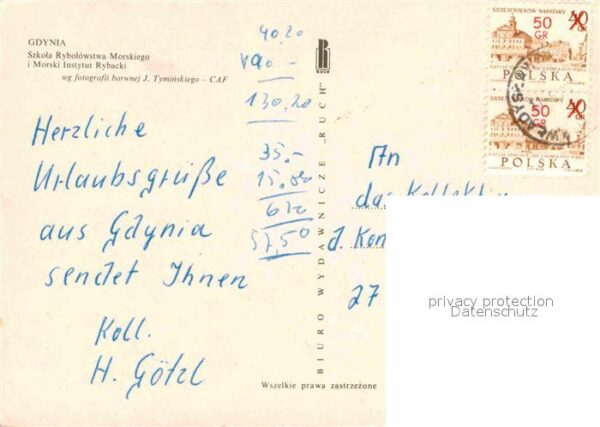 GDYNIA
Szkoła Rybołówstwa Morskiego
i Morski Instytut Rybacki
wg fotografii barwnej J. Tymińskiego – CAF
40,20
90 –
130,20
35.–
15.80
6,70
57,50
Herzliche
Urlaubsgrüße
aus Gdynia
sendet Ihnen
Koll.
H. Götzl
RUCH
BIURO WYDAWNICZE „RUCH"
Wszelkie prawa zastrzeżone
SIEDEM WIEKÓW WARSZAWY
50
GR
40
POLSKA
SIEDEM WIEKÓW WARSZAWY
50
GR
40
POLSKA
An
das
d.
27
privacy protection
Datenschutz